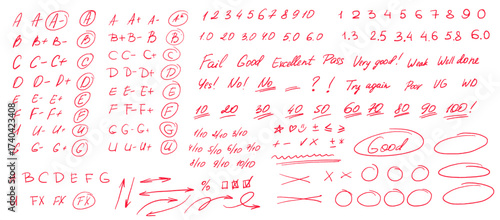 A A- A+ Ⓐ A A+ A- 1* 1 2 3 4 5 6 7 8 9 10 1 2 3 4 5 6 7 8 9
B B+ B- B B B- B+ B 1.0 2.0 3.0 4.0 5.0 6.0 1.3 2.5 3.4 4.6 5.8 6.0
C C- C+ C C C- C+ C
D D- D+ D D D- D+ D Fail Good Excellent Pass Very good! Weak Well done
E E- E+ E E E- E+ E Yes! No! No - ? ! Try again Poor VG WD
F F- F+ F F F- F+ F 10 20 30 40 50 60 70 80 90 100!
U U- U+ U G G- G+ G 1/10 2/10 3/10 4/10 5/10
U U- U+ U 6/10 7/10 8/10 9/10 10/10
Good
B C D E F G
FX FX %
Adobe Stock
#1740423408